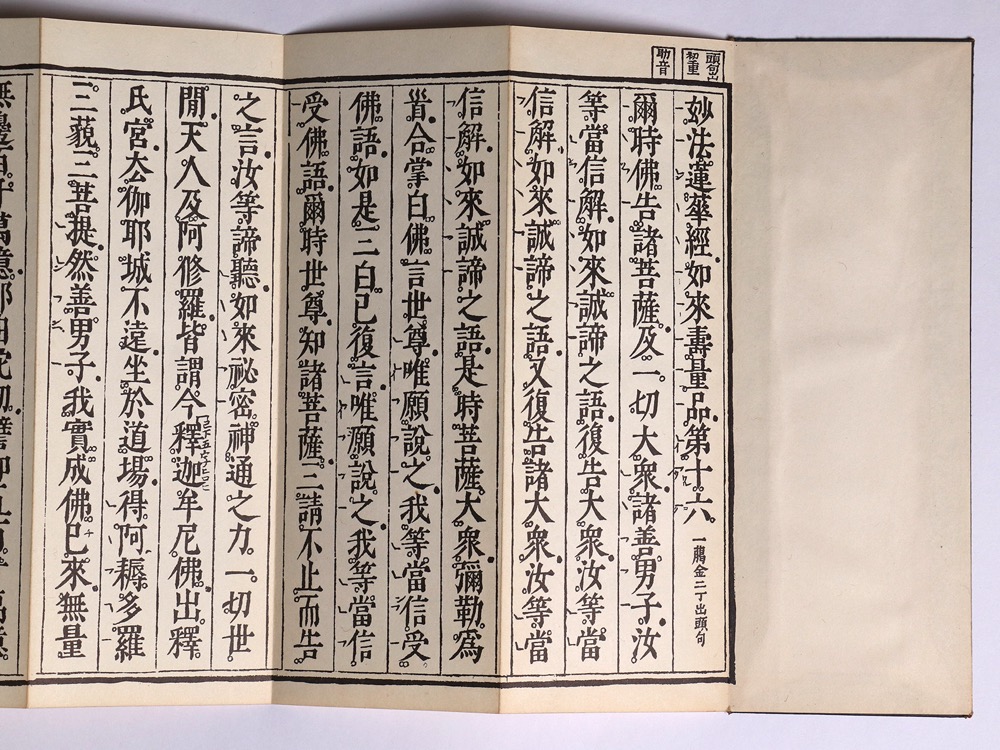 頭句出
初重
助音
妙法蓮華經如來壽量品第十六 一臈金二丁出頭句
爾時佛告諸菩薩及一切大衆諸善男子汝
等當信解如來誠諦之語復告大衆汝等當
信解如來誠諦之語又復告諸大衆汝等當
信解如來誠諦之語是時菩薩大衆彌勒爲
首合掌白佛言世尊唯願說之我等當信受
佛語如是三白已復言唯願說之我等當信
受佛語爾時世尊知諸菩薩三請不止而告
之言汝等諦聽如來祕密神通之力一切世
閒天人及阿修羅皆謂今釋迦牟尼佛出釋
氏宮去伽耶城不遠坐於道場得阿耨多羅
三藐三菩提然善男子我實成佛已來無量
無邊百千萬億那由